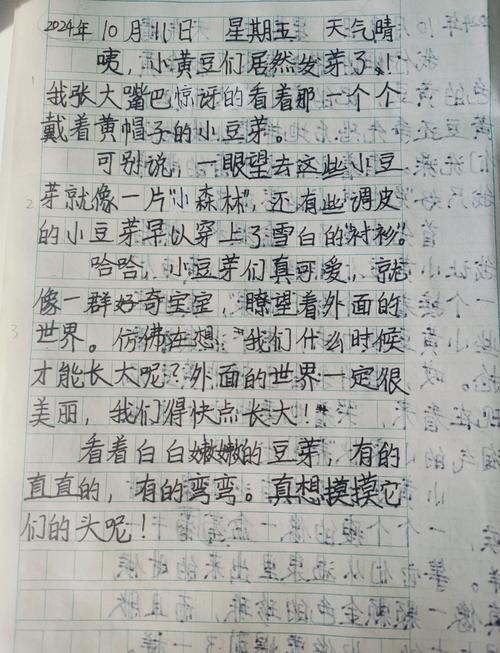 2024年10月11日 星期五 天气晴
咦，小黄豆们居然发芽了！
我张大嘴巴惊讶的看着那一个个
戴着黄帽子的小豆芽。
可别说，一眼望去这些小豆
芽就像一片“小森林”，还有些调皮
的小豆芽早以穿上了雪白的“衬衫”。
哈哈，小豆芽们真可爱，
像一群好奇宝宝，瞭望着外面的
世界。仿佛在想：“我们什么时候
才能长大呢？外面的世界一定很
美丽，我们得快点长大！”
看着白白嫩嫩的豆芽，有的
直直的，有的弯弯。真想摸摸它
们的头呢！